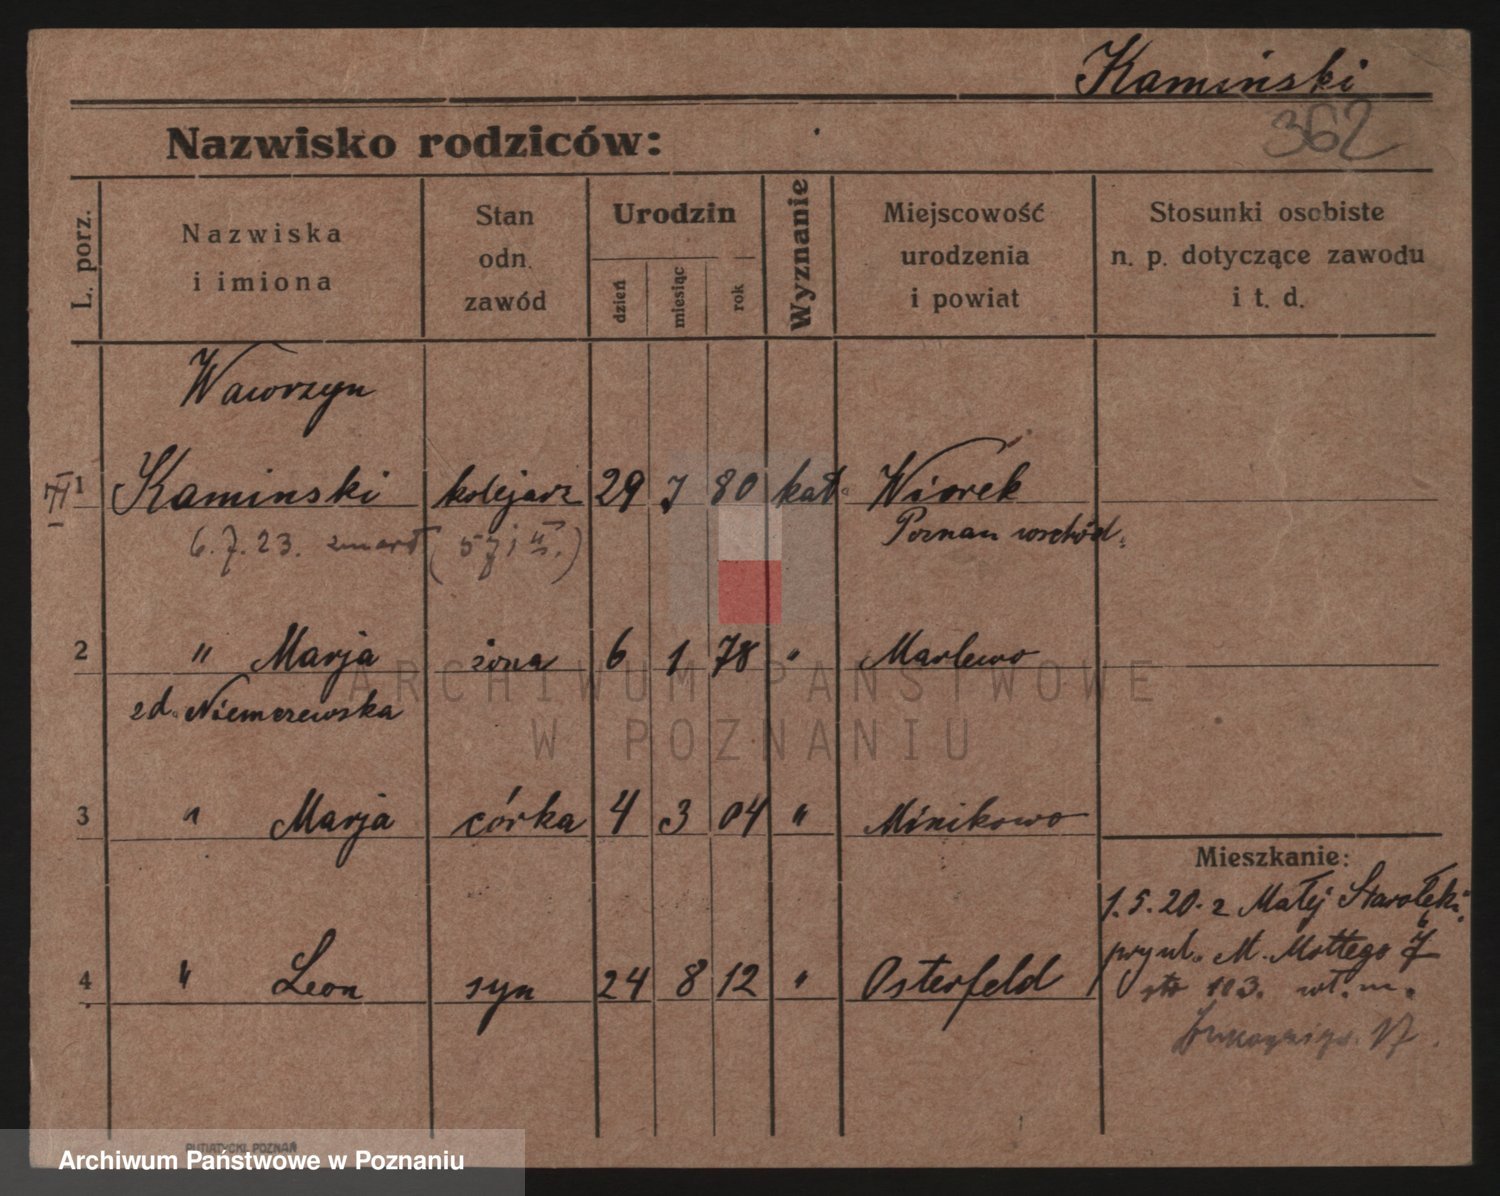 Kamiński
362
Nazwisko rodziców:
L. porz.
Nazwiska
i imiona
Stan
odn.
zawód
Urodzin
dzień
miesiąc
rok
Wyznanie
Miejscowość
urodzenia
i powiat
Stosunki osobiste
n. p. dotyczące zawodu
i t. d.
Wawrzyn
1 Kaminski kolejarz 29 7 80 kat. Wiorek
6.7.23. zmarł Poznan wschód.
2 " Marja żona 6 1 78 " Marlewo
zd. Niemczewska
3 " Marja córka 4 3 04 " Minikowo
Mieszkanie:
1.5.20. z Małej Starołęki
4 " Leon syn 24 8 12 " Osterfeld
przy ul. M. Mottego
103.
17.
PUTIATYCKI, POZNAŃ
ARCHIWUM PAŃSTWOWE
W POZNANIU
Archiwum Państwowe w Poznaniu